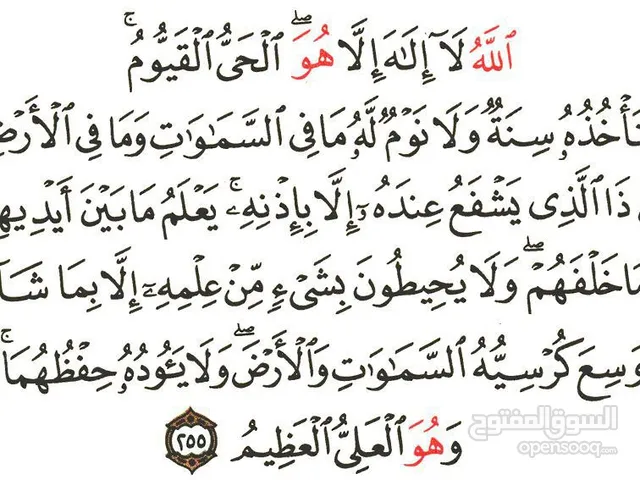 ٱللَّهُ لَآ إِلَٰهَ إِلَّا هُوَ ۖ ٱلْحَىُّ ٱلْقَيُّومُ ۚ
أْخُذُهُۥ سِنَةٌ وَلَا نَوْمٌ لَّهُۥ مَا فِى ٱلسَّمَٰوَٰتِ وَمَا فِى ٱلْأَرْضِ
ذَا ٱلَّذِى يَشْفَعُ عِندَهُۥٓ إِلَّا بِإِذْنِهِۦ ۚ يَعْلَمُ مَا بَيْنَ أَيْدِيهِ
مَا خَلْفَهُمْ ۖ وَلَا يُحِيطُونَ بِشَىْءٍ مِّنْ عِلْمِهِۦٓ إِلَّا بِمَا شَا
وَسِعَ كُرْسِيُّهُ ٱلسَّمَٰوَٰتِ وَٱلْأَرْضَ ۖ وَلَا يَـُٔودُهُۥ حِفْظُهُمَا ۚ
وَهُوَ ٱلْعَلِىُّ ٱلْعَظِيمُ ٢٥٥
السوق المفتوح
opensooq.com